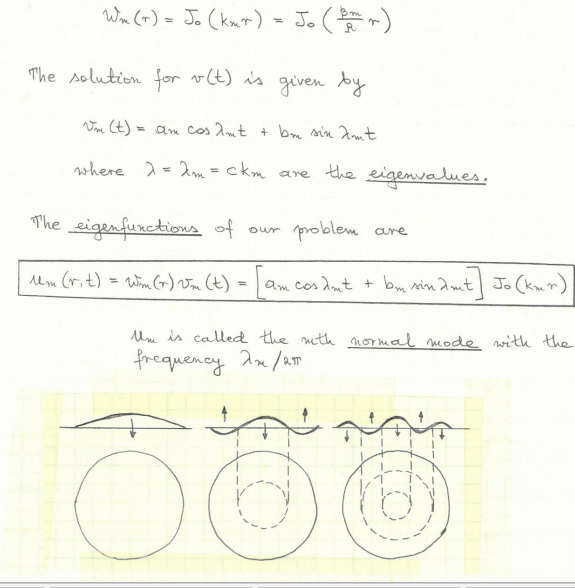 Wm(r) = J₀(kmr) = J₀(βm/R r)
The solution for v(t) is given by
vm(t) = am cos λmt + bm sin λmt
where λ = λm = ckm are the eigenvalues.
The eigenfunctions of our problem are
um(r,t) = wm(r)vm(t) = [am cos λmt + bm sin λmt] J₀(kmr)
um is called the mth normal mode with the
frequency λm/2π